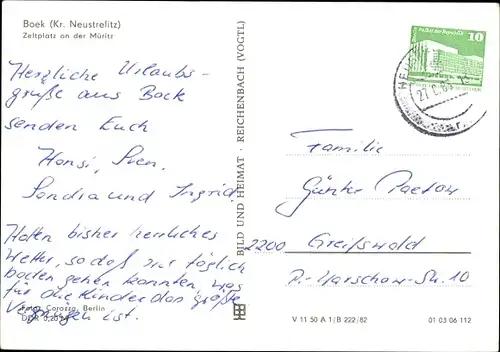 Boek (Kr. Neustrelitz)
Zeltplatz an der Müritz
Herzliche Urlaubs-
grüße aus Boek
senden Euch
Hansi, Sven,
Sandra und Ingrid.
Hatten bisher herrliches
Wetter, so daß wir täglich
baden gehen konnten, was
für die Kinder das größte
Vergnügen ist.
Foto: Corazza, Berlin
DDR 0,20 M
BILD UND HEIMAT · REICHENBACH (VOGTL)
10
Familie
Günter Paetow
2200 Greifswald
P.-Warschow-Str. 10
V 11 50 A 1/B 222/82
01 03 06 112